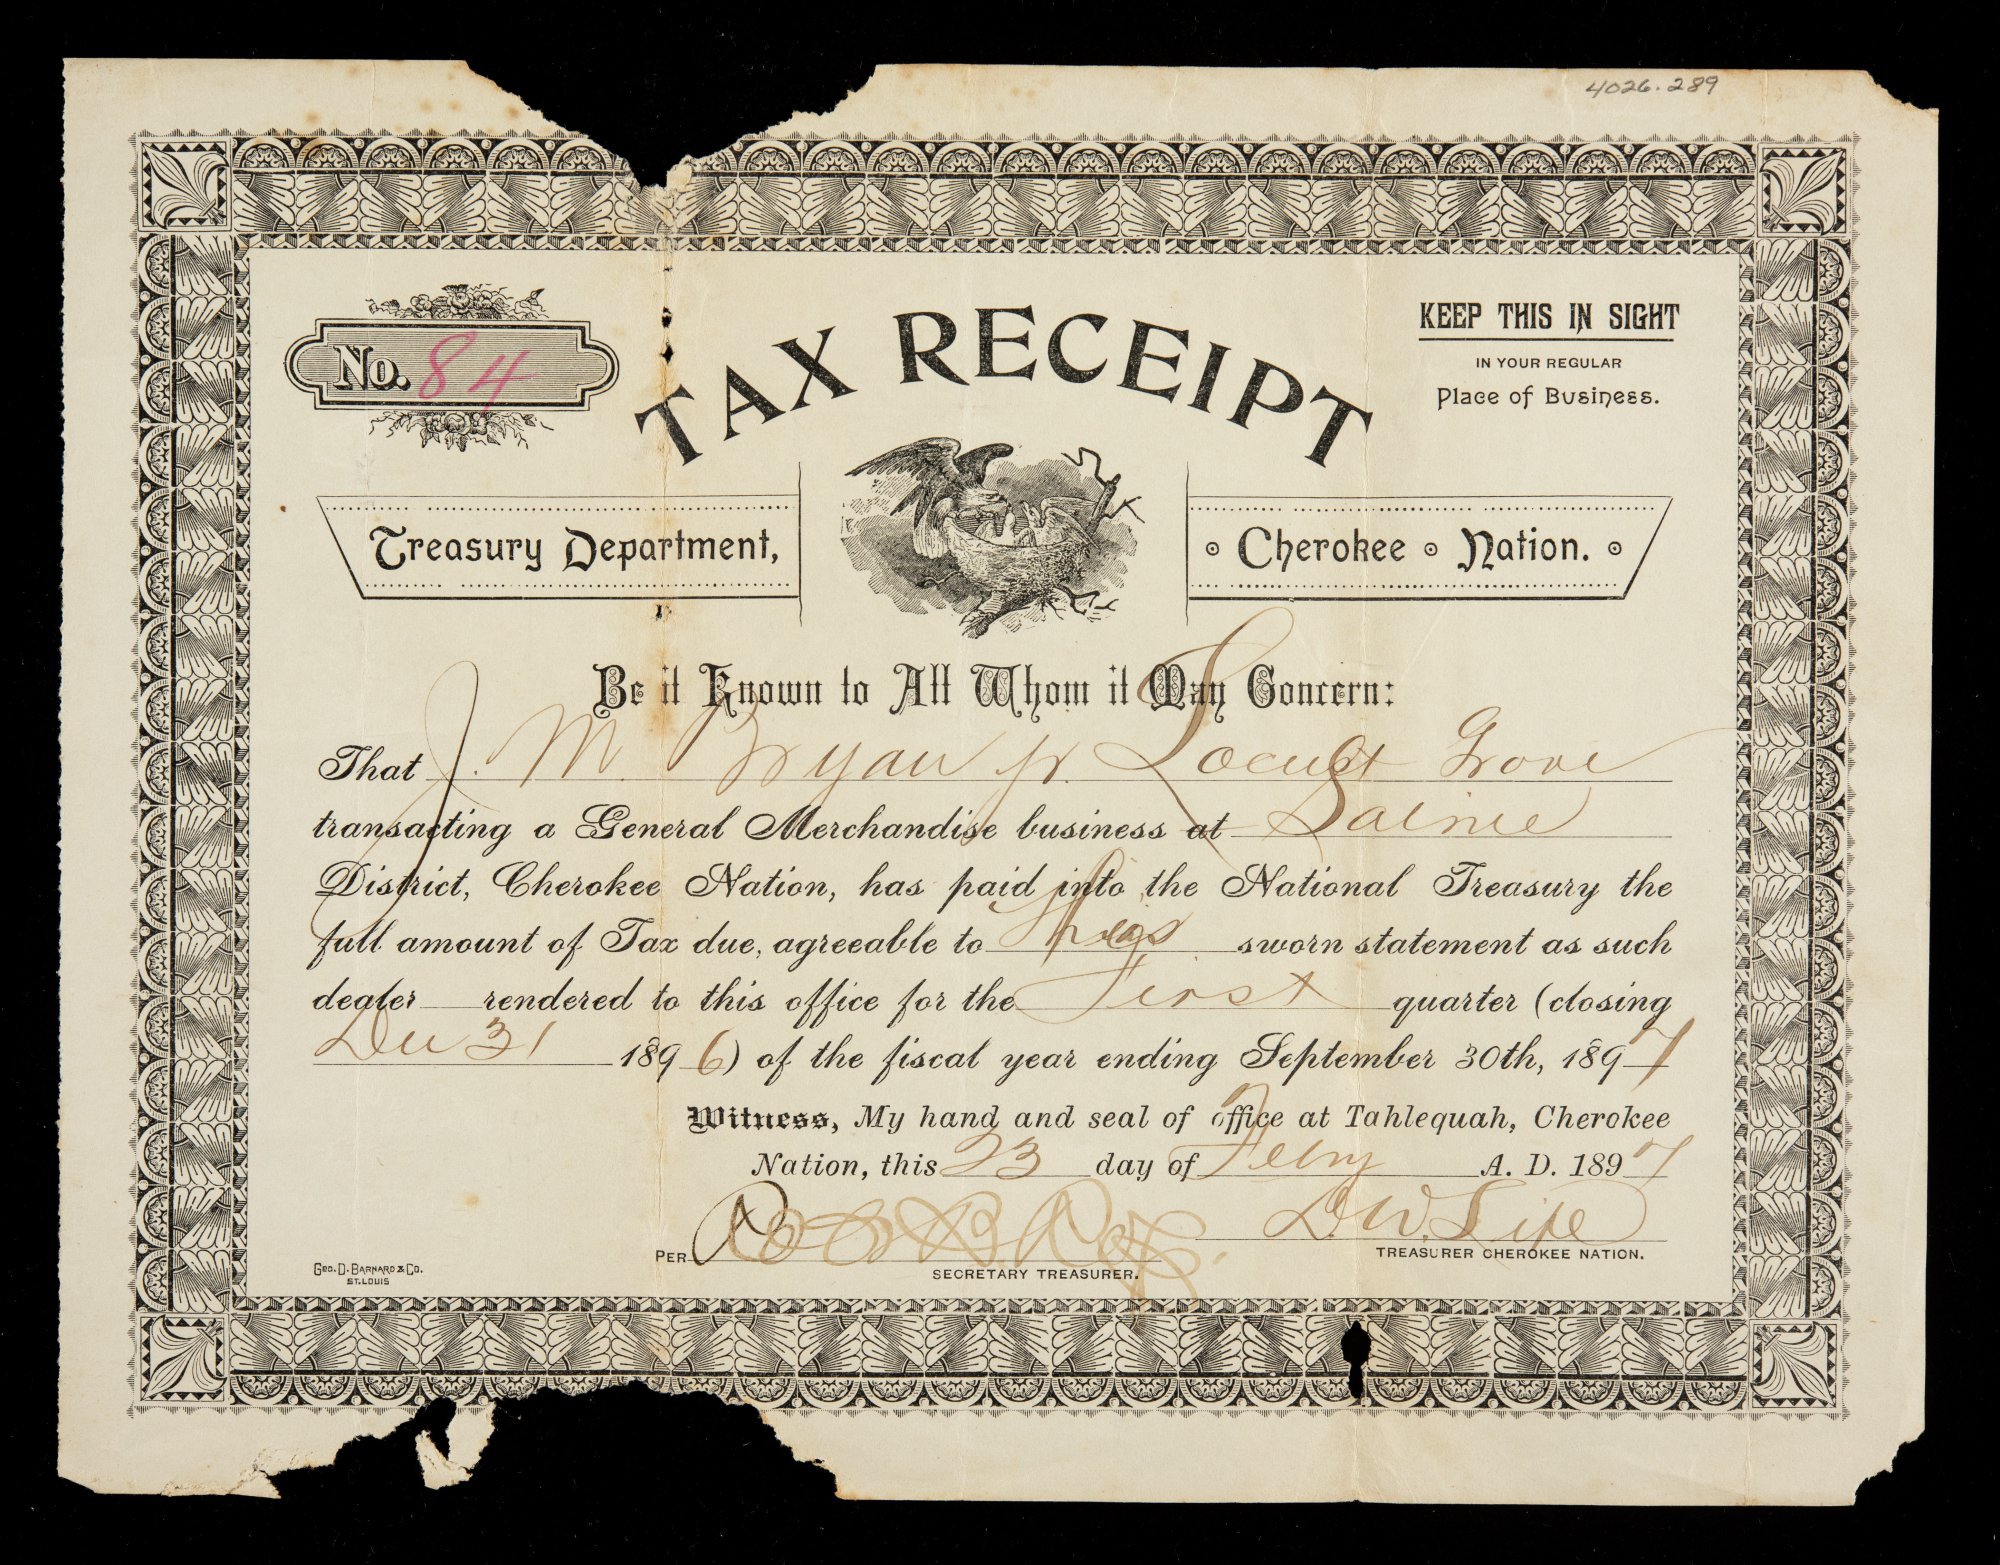 4026.289
No. 84
TAX RECEIPT
KEEP THIS IN SIGHT
IN YOUR REGULAR
Place of Business.
Treasury Department,
Cherokee Nation.
Be it Known to All Whom it May Concern:
That J. M. Bryan jr. Locust Grove
transacting a General Merchandise business at Saline
District, Cherokee Nation, has paid into the National Treasury the
full amount of Tax due, agreeable to his sworn statement as such
dealer rendered to this office for the First quarter (closing
Dec 31 1896) of the fiscal year ending September 30th, 1897
Witness, My hand and seal of office at Tahlequah, Cherokee
Nation, this 23 day of Febry A. D. 1897
D. W. Lipe
TREASURER CHEROKEE NATION.
PER
SECRETARY TREASURER.
GEO. D. BARNARD & CO.
ST. LOUIS